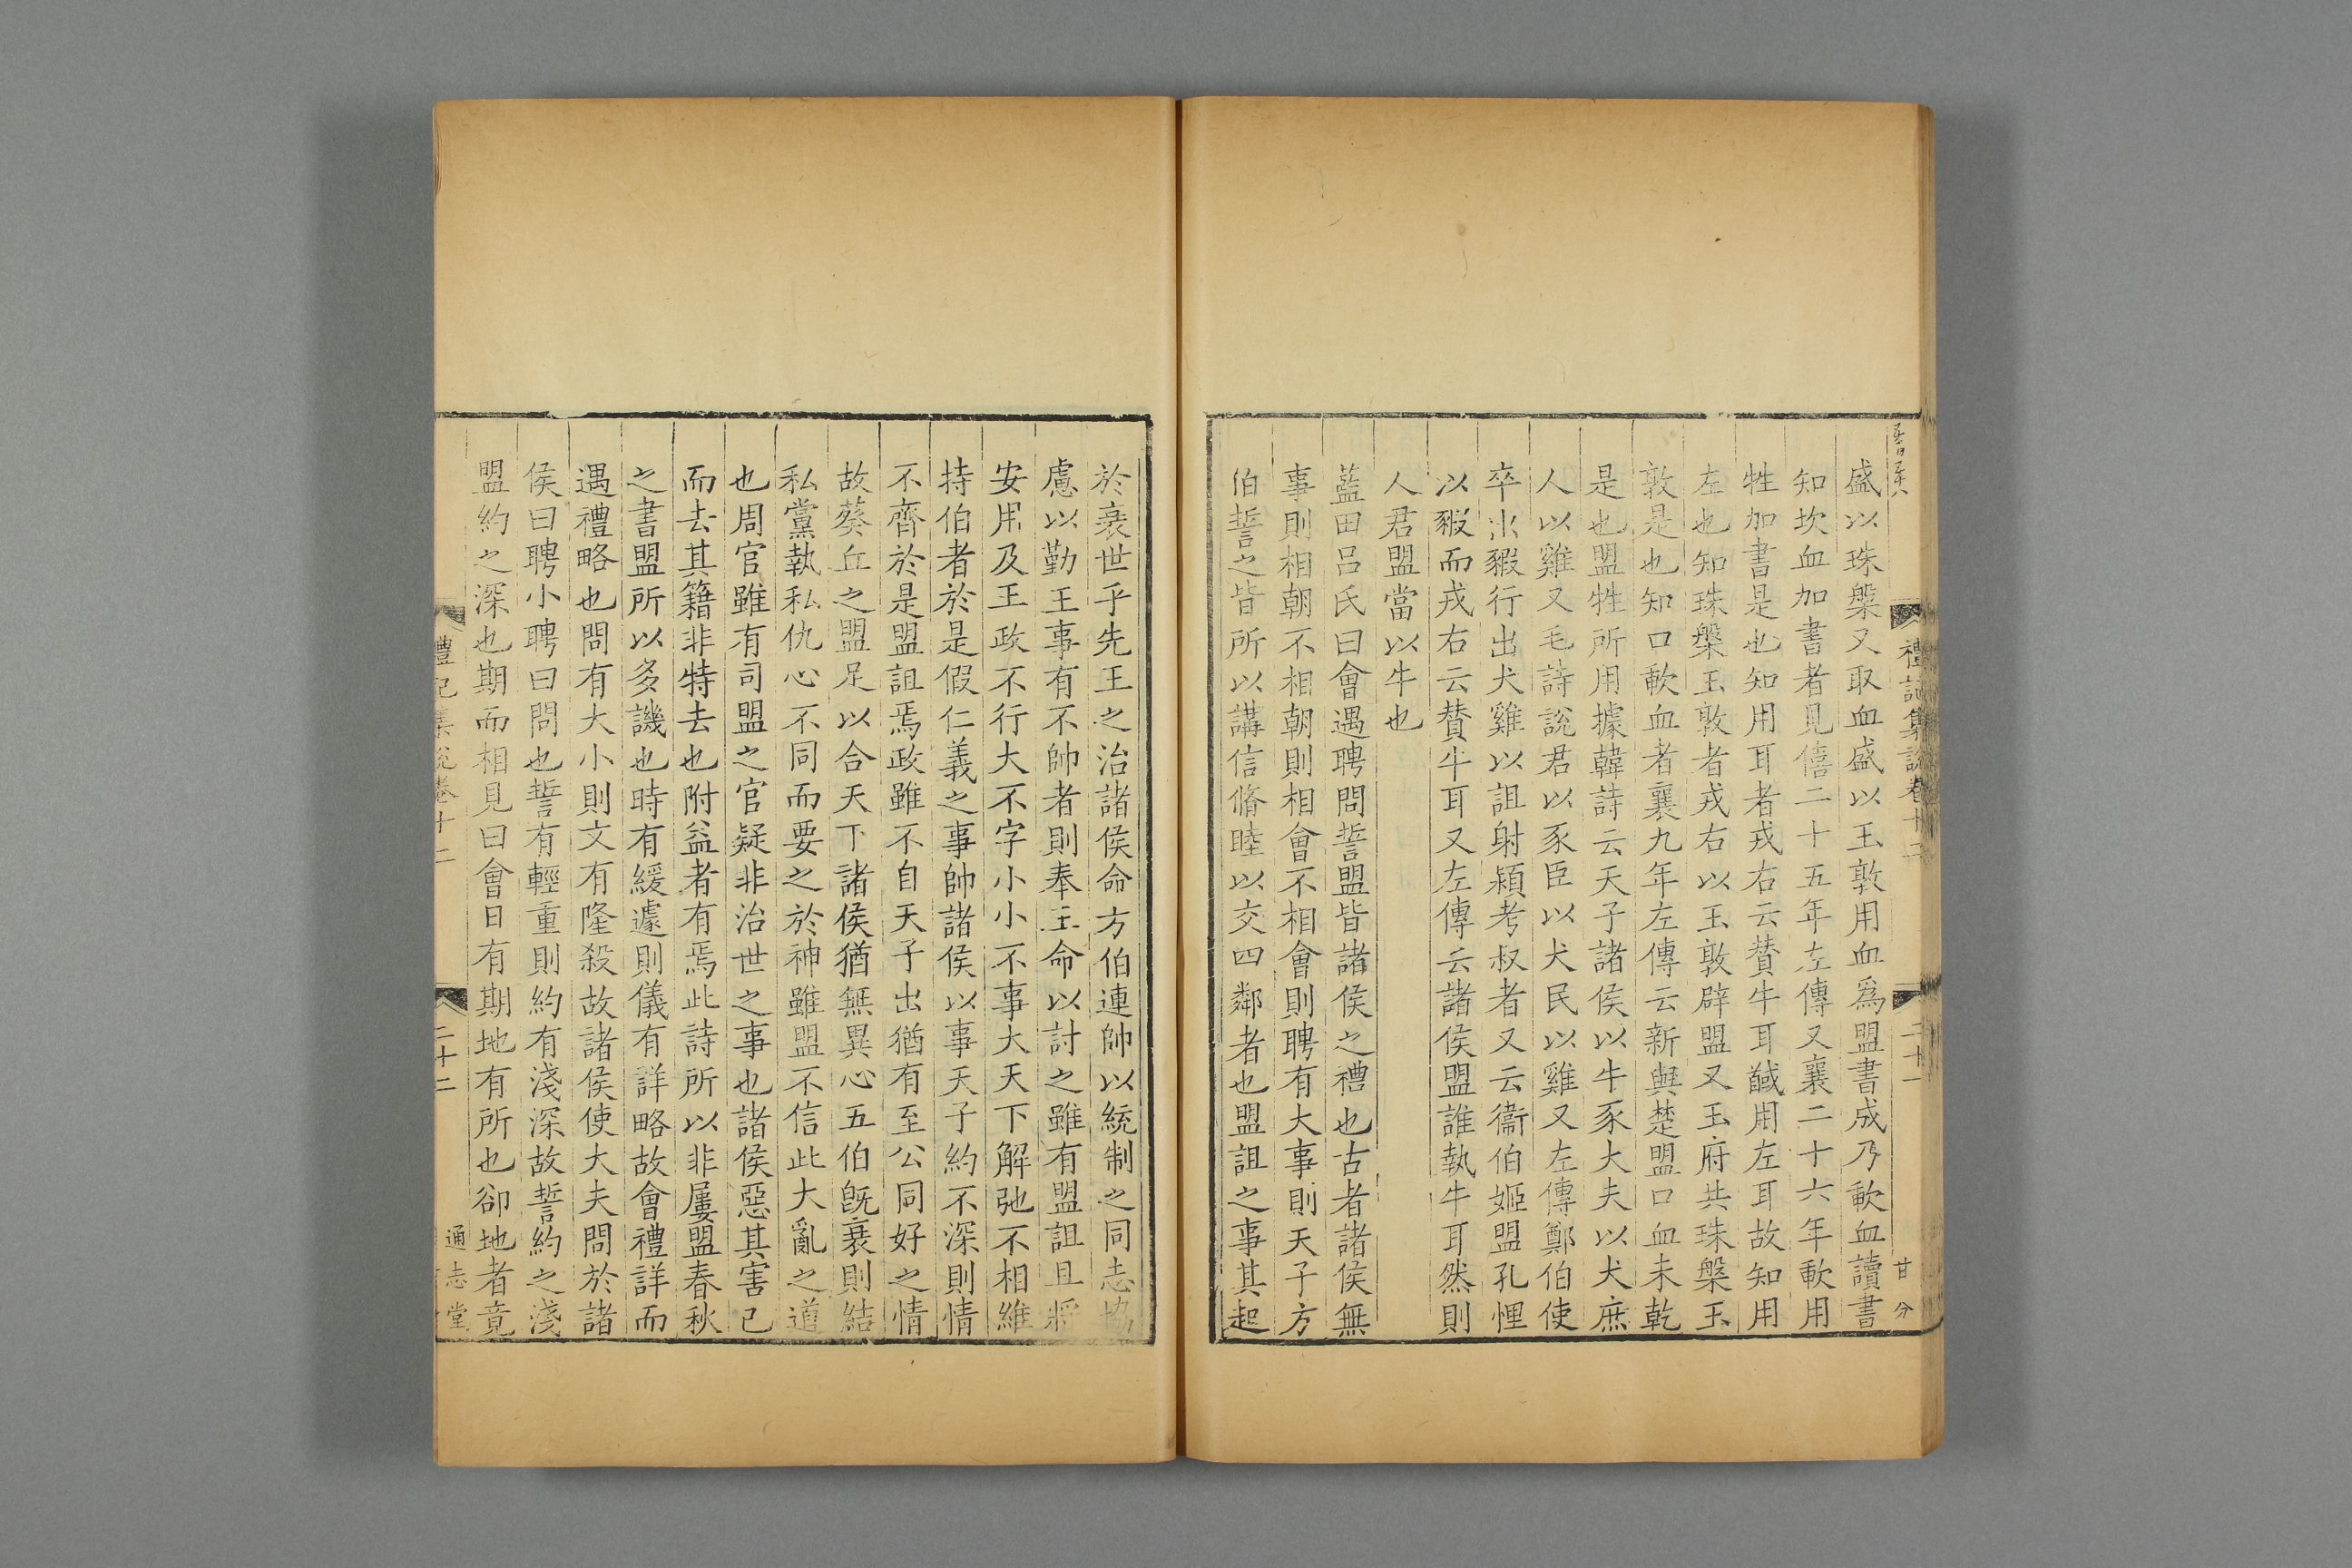 禮記集說卷十二
二十一
甘 分
盛以珠槃又取血盛以玉敦用血爲盟書成乃歃血讀書
知坎血加書者見僖二十五年左傳又襄二十六年歃用
牲加書是也知用耳者戎右云贊牛耳馘用左耳故知用
左也知珠槃玉敦者戎右以玉敦辟盟又玉府共珠槃玉
敦是也知口歃血者襄九年左傳云新與楚盟口血未乾
是也盟牲所用據韓詩云天子諸侯以牛豕大夫以犬庶
人以雞又毛詩說君以豕臣以犬民以雞又左傳鄭伯使
卒出豭行出犬雞以詛射潁考叔者又云衞伯姬盟孔悝
以豭而戎右云贊牛耳又左傳云諸侯盟誰執牛耳然則
人君盟當以牛也
藍田呂氏曰會遇聘問誓盟皆諸侯之禮也古者諸侯無
事則相朝不相朝則相會不相會則聘有大事則天子方
伯誓之皆所以講信脩睦以交四鄰者也盟詛之事其起
於衰世乎先王之治諸侯命方伯連帥以統制之同志協
慮以勤王事有不帥者則奉王命以討之雖有盟詛且將
安用及王政不行大不字小小不事大天下解弛不相維
持伯者於是假仁義之事帥諸侯以事天子約不深則情
不齊於是盟詛焉政雖不自天子出猶有至公同好之情
故葵丘之盟足以合天下諸侯猶無異心五伯旣衰則結
私黨執私仇心不同而要之於神雖盟不信此大亂之道
也周官雖有司盟之官疑非治世之事也諸侯惡其害己
而去其籍非特去也附益者有焉此詩所以非屢盟春秋
之書盟所以多譏也時有緩遽則儀有詳略故會禮詳而
遇禮略也問有大小則文有隆殺故諸侯使大夫問於諸
侯曰聘小聘曰問也誓有輕重則約有淺深故誓約之淺
盟約之深也期而相見曰會日有期地有所也郤地者竟
禮記集說卷十二
二十二
通志堂